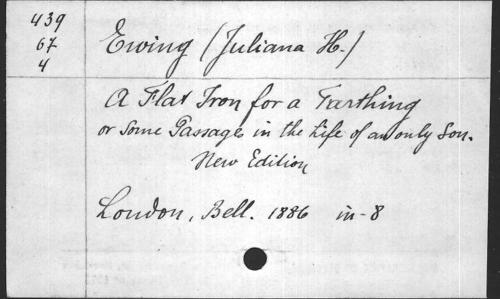 439
67
4
Ewing (Juliana H.)
A Flat Iron for a Farthing
or Some Passages in the Life of an only Son.
New Edition
London, Bell. 1886 in-8